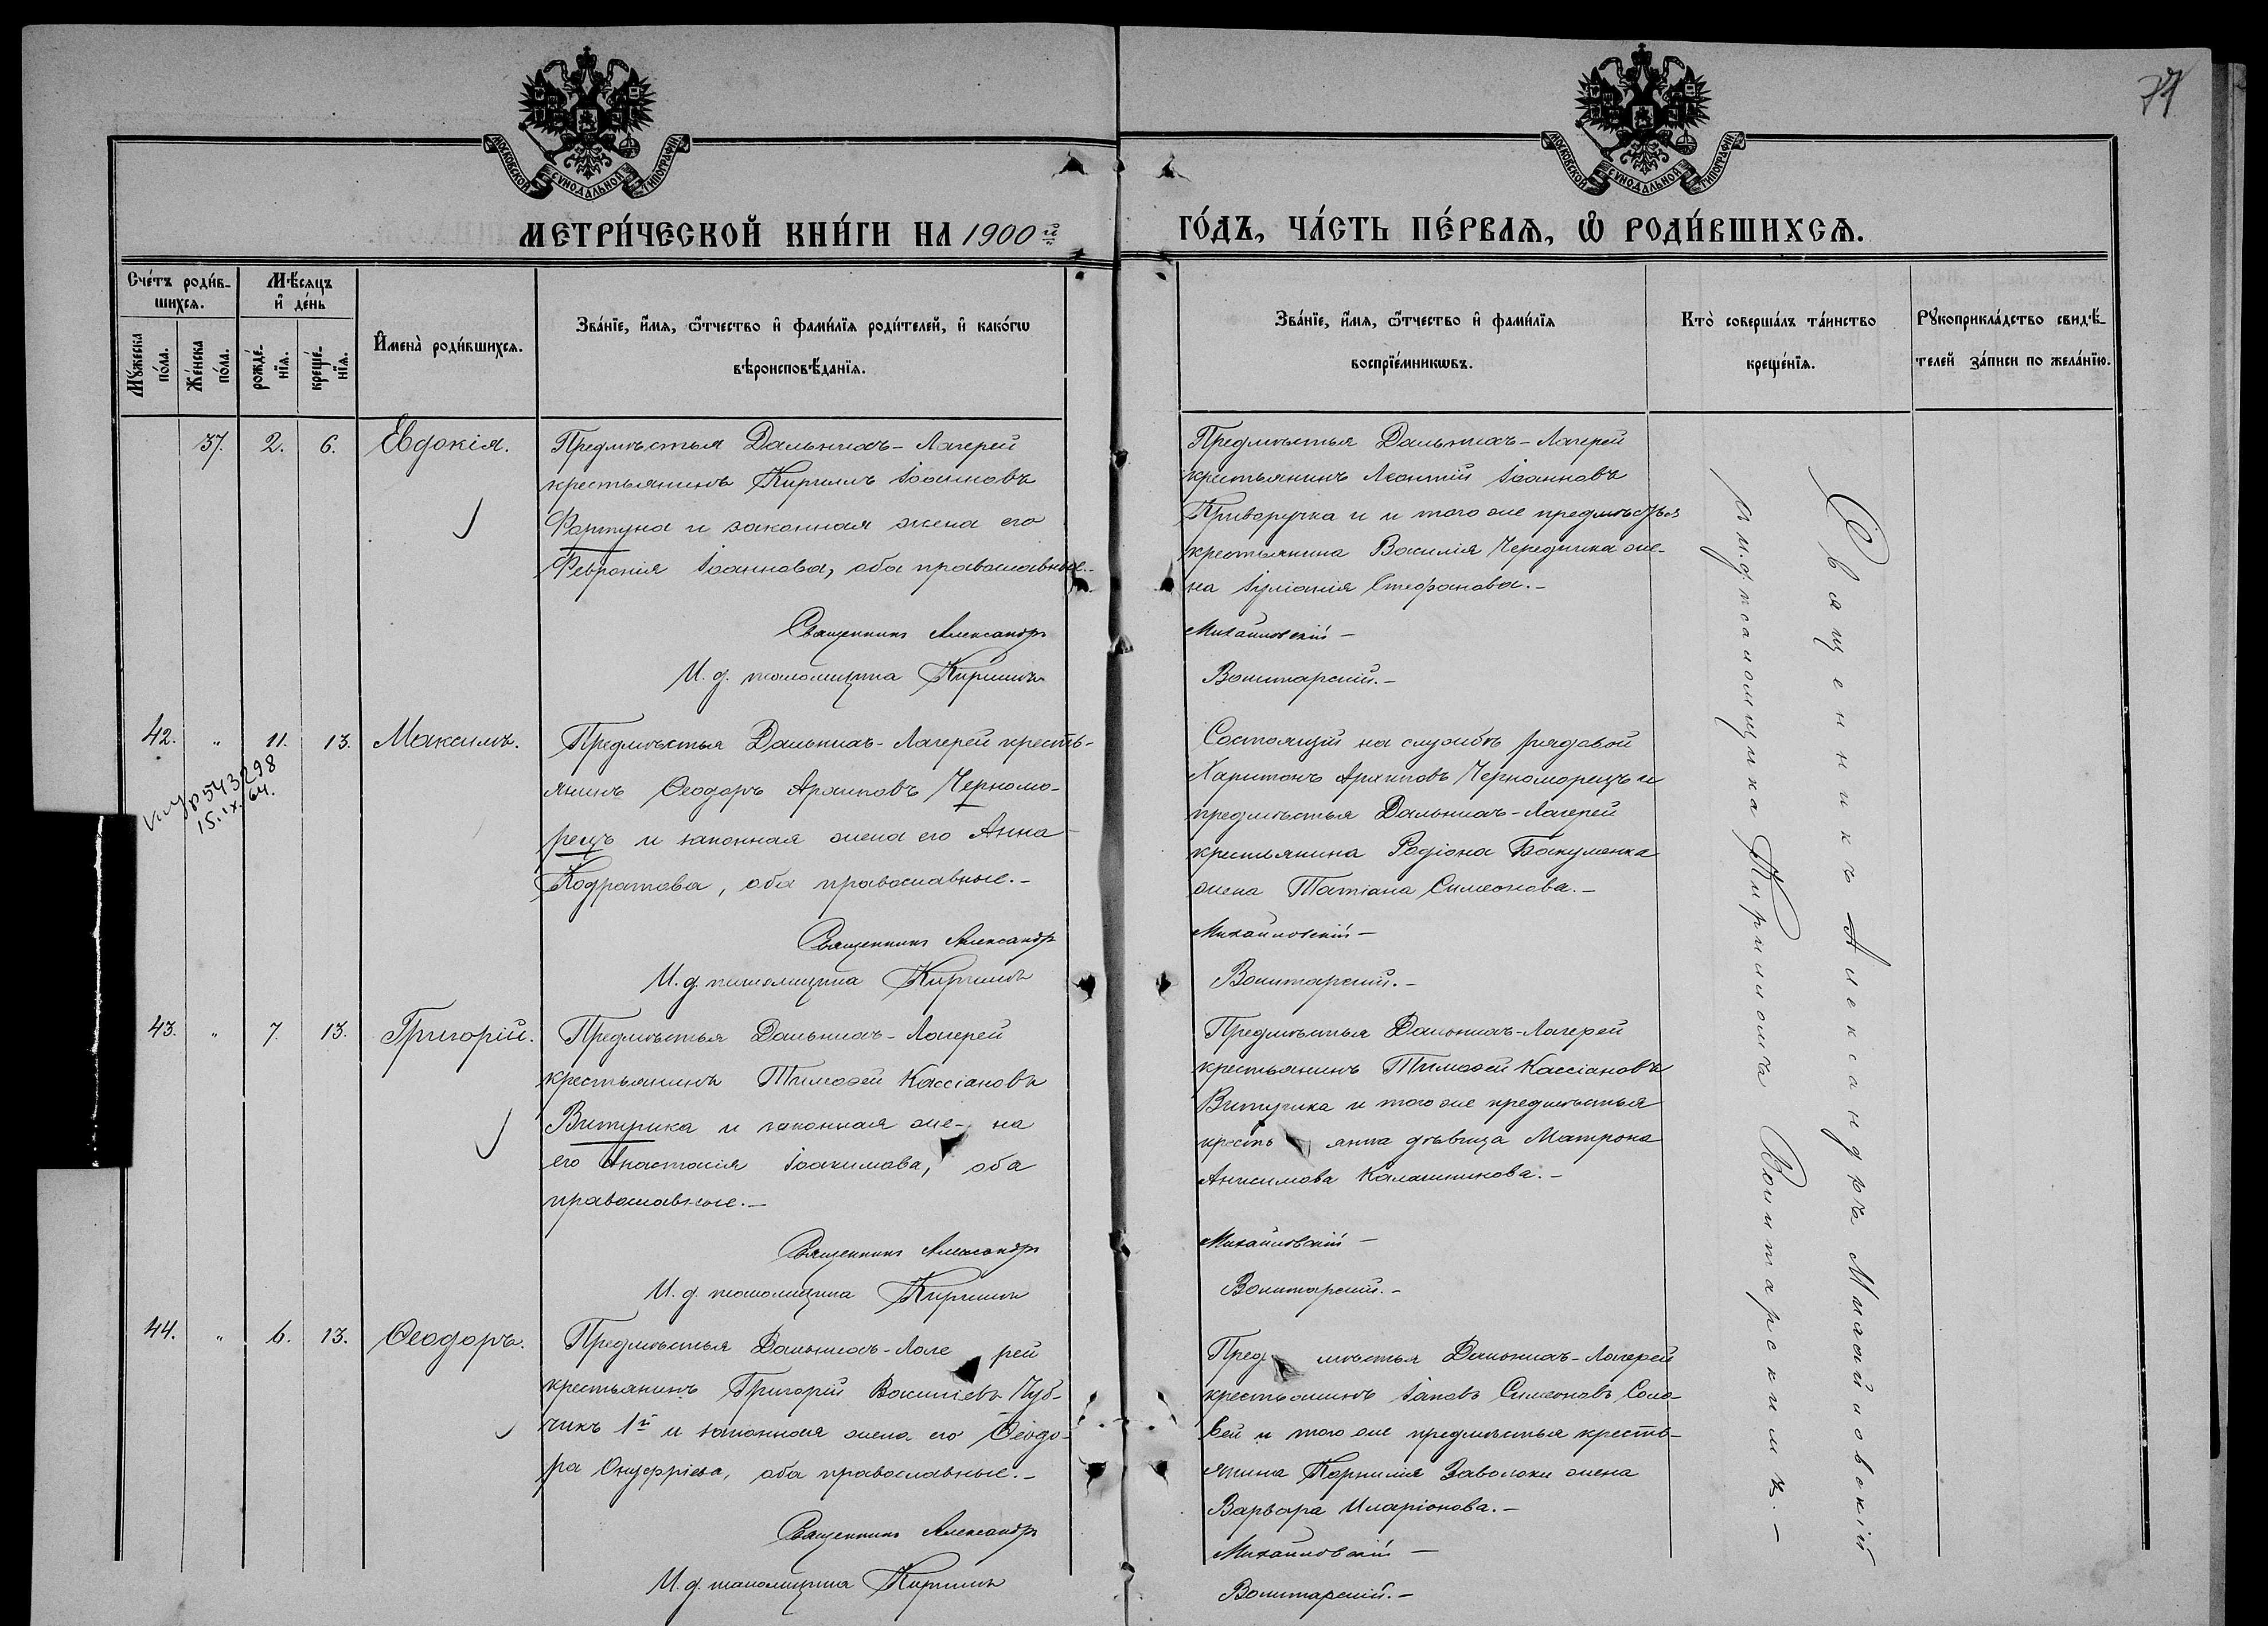 МОСКОВСКОЙ СУНОДАЛЬНОЙ ТИПОГРАФІИ.
МОСКОВСКОЙ СУНОДАЛЬНОЙ ТИПОГРАФІИ.
МЕТРИ́ЧЕСКОЙ КНИ́ГИ НА 1900й
ГО́ДЪ, ЧА́СТЬ ПЕ́РВАѦ, Ѡ РОДИ́ВШИХСѦ.
Сче́тъ роди́в-
шихсѧ.
Мꙋ́жеска по́ла.
Же́нска по́ла.
Мѣ́сѧцъ
и҆ де́нь
рожде́-
нїѧ.
креще́-
нїѧ.
И҆мена̀ роди́вшихсѧ.
Зва́нїе, и҆́мѧ, ѻ҆́тчество и҆ фами́лїѧ роди́телей, и҆ како́гѡ
вѣроисповѣ́данїѧ.
Зва́нїе, и҆́мѧ, ѻ҆́тчество и҆ фами́лїѧ
воспрїе́мникѡвъ.
Кто̀ соверша́лъ та́инство
креще́нїѧ.
Рꙋкоприкла́дство свидѣ́-
телей за́писи по жела́нїю.
37. 2. 6. Евдокія.
Предмѣстья Дальнихъ-Лагерей
крестьянинъ Кириллъ Іоанновъ
Фортуна и законная жена его
Феvронія Іоаннова, оба православные.-
Священникъ Александръ
И. д. псаломщика Кириллъ
Предмѣстья Дальнихъ-Лагерей
крестьянинъ Леонтій Іоанновъ
Криворучка и и того же предмѣстья
крестьянина Василія Чередника же-
на Іуліанія Стефанова.-
Михайловскій -
Воинтарскій.-
42. " 11. 13. Максимъ.
543298
15.IX.64.
Предмѣстья Дальнихъ-Лагерей кресть-
янинъ Ѳеодоръ Архиповъ Черномо-
рецъ и законная жена его Анна
Кодратова, оба православные.-
Священникъ Александръ
И. д. псаломщика Кириллъ
Состоящій на службѣ рядовой
Харитонъ Архиповъ Черноморецъ и
предмѣстья Дальнихъ-Лагерей
крестьянина Родіона Бакуменка
жена Татіана Симеонова.-
Михайловскій -
Воинтарскій.-
43. " 7. 13. Григорій.
Предмѣстья Дальнихъ-Лагерей
крестьянинъ Тимоѳей Кассіановъ
Витушка и законная же-на
его Анастасія Іоакимова, оба
православные.-
Священникъ Александръ
И. д. псаломщика Кириллъ
Предмѣстья Дальнихъ-Лагерей
крестьянинъ Тимоѳей Кассіановъ
Витушка и того же предмѣстья
крестьянка дѣвица Матрона
Анисимова Калашникова.-
Михайловскій -
Воинтарскій.-
44. " 6. 13. Ѳеодоръ.
Предмѣстья Дальнихъ-Лагерей
крестьянинъ Григорій Васильевъ Чуб-
чикъ 1й и законная жена его Ѳеодо-
ра Онуфріева, оба православные.-
Священникъ Александръ
И. д. псаломщика Кириллъ
Предмѣстья Дальнихъ-Лагерей
крестьянинъ Іаковъ Симеоновъ Соло-
вей и того же предмѣстья кресть-
янина Корнилія Заволоки жена
Варвара Иларіонова.-
Михайловскій -
Воинтарскій.-
Священникъ Александръ Михайловскій
съ и. д. псаломщика Кирилломъ Воинтарскимъ.-